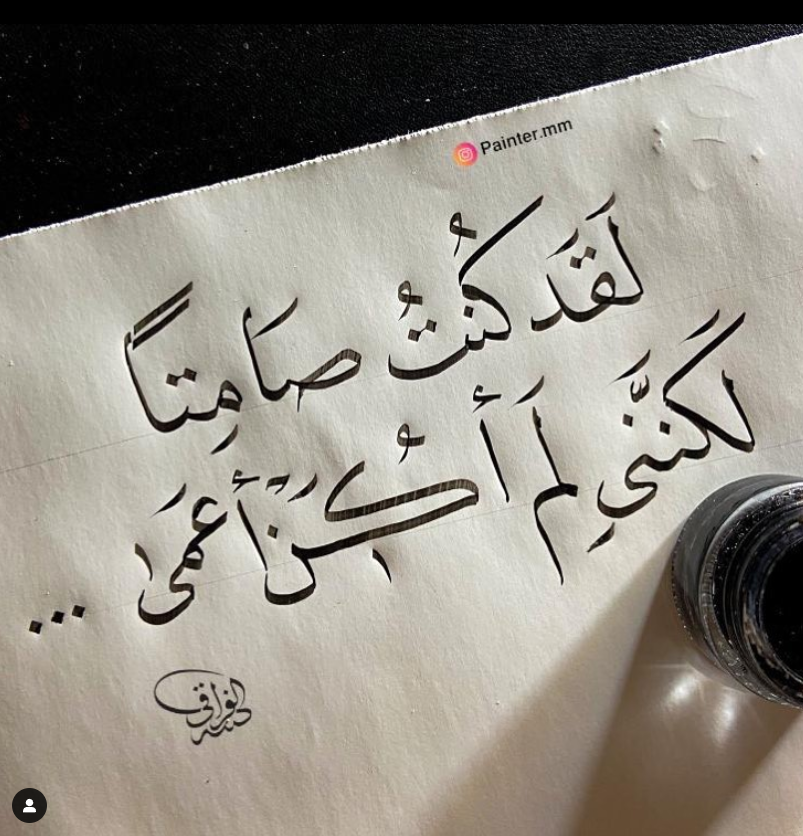 Painter.mm
لَقَد كُنتُ صَامِتاً
لَكنَّني لَم أَكُن أَعمَى ...